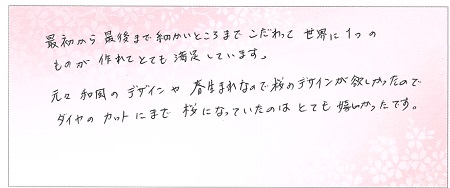 最初から最後まで細かいところまでこだわって世界に1つの
ものが作れてとても満足しています。
元々和風のデザインや春生まれなので桜のデザインが欲しかったので
ダイヤのカットにまで桜になっていたのはとても嬉しかったです。